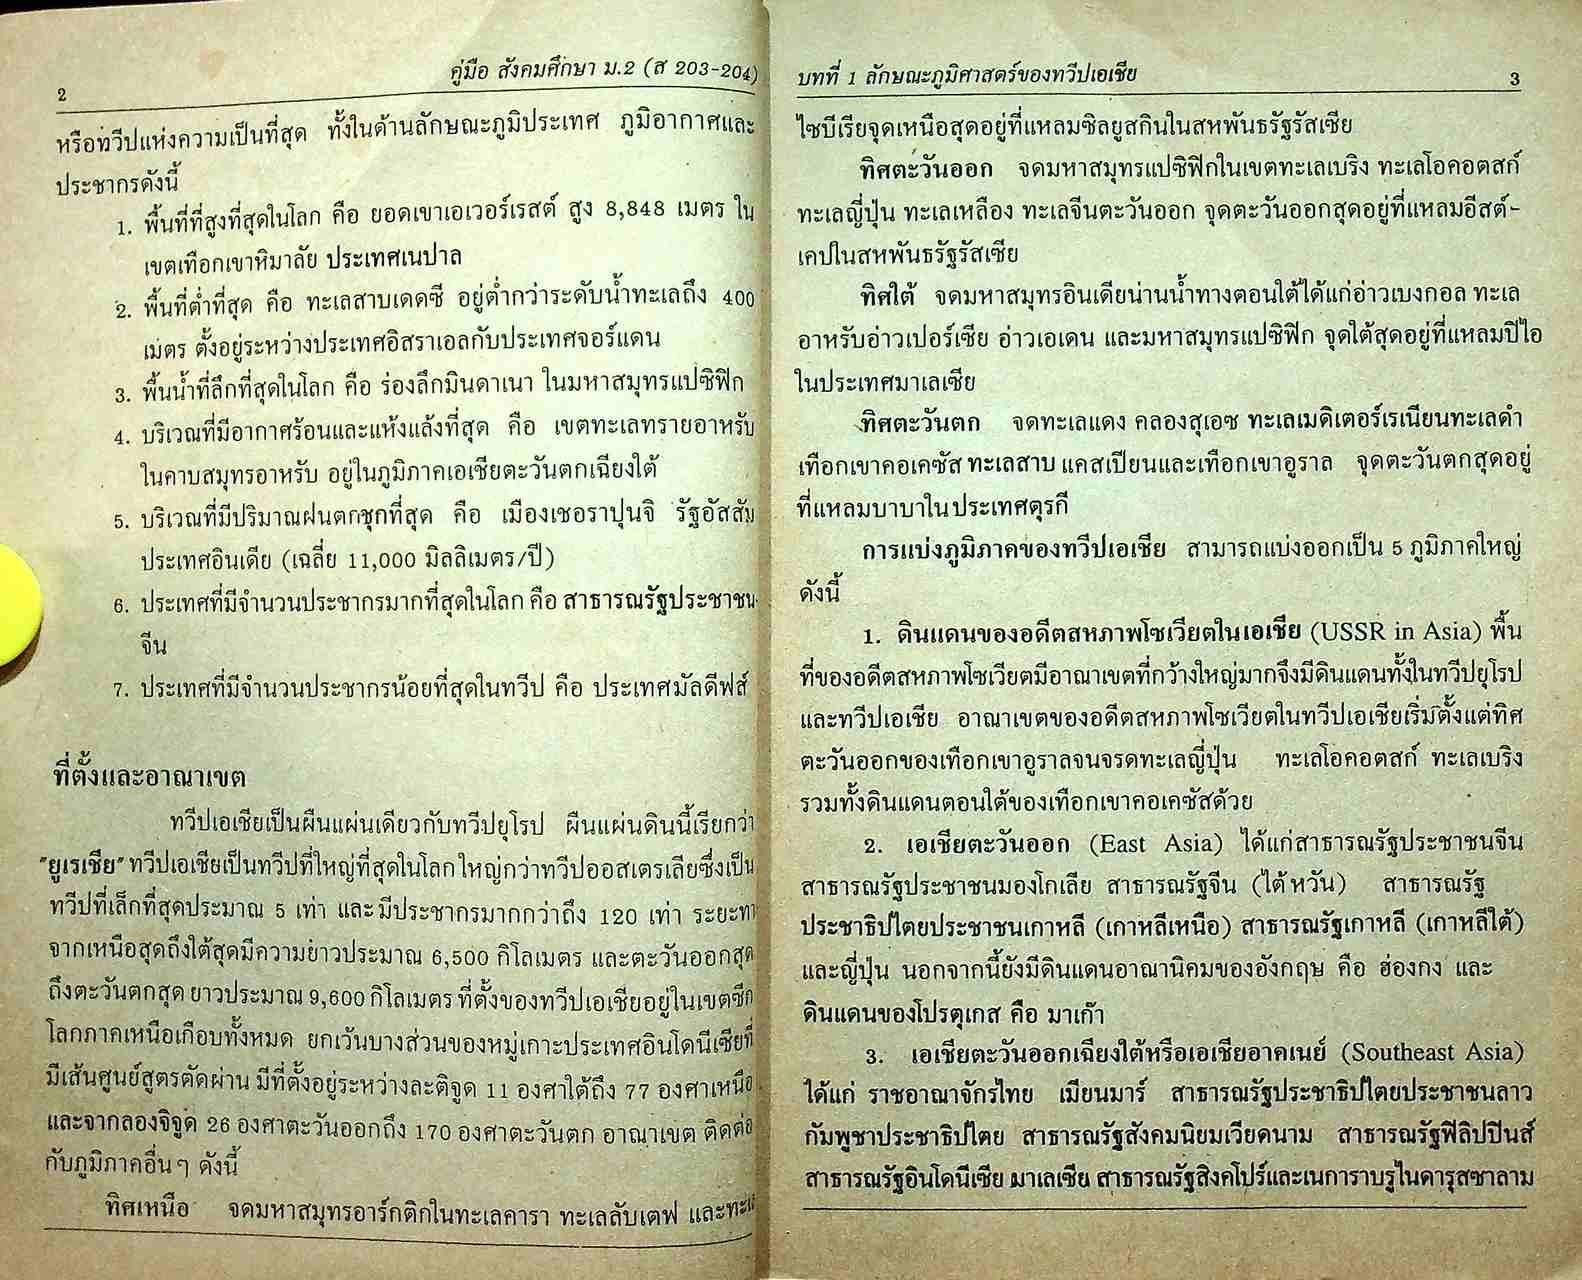 2
คู่มือ สังคมศึกษา ม.2 (ส 203-204)
หรือทวีปแห่งความเป็นที่สุด ทั้งในด้านลักษณะภูมิประเทศ ภูมิอากาศและ
ประชากรดังนี้
1. พื้นที่ที่สูงที่สุดในโลก คือ ยอดเขาเอเวอร์เรสต์ สูง 8,848 เมตร ใน
เขตเทือกเขาหิมาลัย ประเทศเนปาล
2. พื้นที่ต่ำที่สุด คือ ทะเลสาบเดดซี อยู่ต่ำกว่าระดับน้ำทะเลถึง 400
เมตร ตั้งอยู่ระหว่างประเทศอิสราเอลกับประเทศจอร์แดน
3. พื้นน้ำที่ลึกที่สุดในโลก คือ ร่องลึกมินดาเนา ในมหาสมุทรแปซิฟิก
4. บริเวณที่มีอากาศร้อนและแห้งแล้งที่สุด คือ เขตทะเลทรายอาหรับ
ในคาบสมุทรอาหรับ อยู่ในภูมิภาคเอเชียตะวันตกเฉียงใต้
5. บริเวณที่มีปริมาณฝนตกชุกที่สุด คือ เมืองเชอราปุนจิ รัฐอัสสัม
ประเทศอินเดีย (เฉลี่ย 11,000 มิลลิเมตร/ปี)
6. ประเทศที่มีจำนวนประชากรมากที่สุดในโลก คือ สาธารณรัฐประชาชน
จีน
7. ประเทศที่มีจำนวนประชากรน้อยที่สุดในทวีป คือ ประเทศมัลดีฟส์
ที่ตั้งและอาณาเขต
ทวีปเอเชียเป็นผืนแผ่นเดียวกับทวีปยุโรป ผืนแผ่นดินนี้เรียกว่า
"ยูเรเชีย" ทวีปเอเชียเป็นทวีปที่ใหญ่ที่สุดในโลก ใหญ่กว่าทวีปออสเตรเลียซึ่งเป็น
ทวีปที่เล็กที่สุดประมาณ 5 เท่า และมีประชากรมากกว่าถึง 120 เท่า ระยะทา
จากเหนือสุดถึงใต้สุดมีความยาวประมาณ 6,500 กิโลเมตร และตะวันออกสุด
ถึงตะวันตกสุด ยาวประมาณ 9,600 กิโลเมตร ที่ตั้งของทวีปเอเชียอยู่ในเขตซีก
โลกภาคเหนือเกือบทั้งหมด ยกเว้นบางส่วนของหมู่เกาะประเทศอินโดนีเซียที่
มีเส้นศูนย์สูตรตัดผ่าน มีที่ตั้งอยู่ระหว่างละติจูด 11 องศาใต้ถึง 77 องศาเหนือ
และจากลองจิจูด 26 องศาตะวันออกถึง 170 องศาตะวันตก อาณาเขต ติดต่อ
กับภูมิภาคอื่นๆ ดังนี้
ทิศเหนือ จดมหาสมุทรอาร์กติกในทะเลคารา ทะเลลับเตฟ และทะเ
บทที่ 1 ลักษณะภูมิศาสตร์ของทวีปเอเชีย
3
ไซบีเรียจุดเหนือสุดอยู่ที่แหลมซิลยูสกินในสหพันธรัฐรัสเซีย
ทิศตะวันออก จดมหาสมุทรแปซิฟิกในเขตทะเลเบริง ทะเลโอคอตสก์
ทะเลญี่ปุ่น ทะเลเหลือง ทะเลจีนตะวันออก จุดตะวันออกสุดอยู่ที่แหลมอีสต์-
เคปในสหพันธรัฐรัสเซีย
ทิศใต้ จดมหาสมุทรอินเดียน่านน้ำทางตอนใต้ได้แก่อ่าวเบงกอล ทะเล
อาหรับอ่าวเปอร์เซีย อ่าวเอเดน และมหาสมุทรแปซิฟิก จุดใต้สุดอยู่ที่แหลมปิไอ
ในประเทศมาเลเซีย
ทิศตะวันตก จดทะเลแดง คลองสุเอซ ทะเลเมดิเตอร์เรเนียนทะเลดำ
เทือกเขาคอเคซัส ทะเลสาบ แคสเปียนและเทือกเขาอูราล จุดตะวันตกสุดอยู่
ที่แหลมบาบาในประเทศตุรกี
การแบ่งภูมิภาคของทวีปเอเชีย สามารถแบ่งออกเป็น 5 ภูมิภาคใหญ่
ดังนี้
1. ดินแดนของอดีตสหภาพโซเวียตในเอเชีย (USSR in Asia) พื้น
ที่ของอดีตสหภาพโซเวียตมีอาณาเขตที่กว้างใหญ่มากจึงมีดินแดนทั้งในทวีปยุโรป
และทวีปเอเชีย อาณาเขตของอดีตสหภาพโซเวียตในทวีปเอเชียเริ่มตั้งแต่ทิศ
ตะวันออกของเทือกเขาอูราลจนจรดทะเลญี่ปุ่น ทะเลโอคอตสก์ ทะเลเบริง
รวมทั้งดินแดนตอนใต้ของเทือกเขาคอเคซัสด้วย
2. เอเชียตะวันออก (East Asia) ได้แก่สาธารณรัฐประชาชนจีน
สาธารณรัฐประชาชนมองโกเลีย สาธารณรัฐจีน (ไต้หวัน) สาธารณรัฐ
ประชาธิปไตยประชาชนเกาหลี (เกาหลีเหนือ) สาธารณรัฐเกาหลี (เกาหลีใต้)
และญี่ปุ่น นอกจากนี้ยังมีดินแดนอาณานิคมของอังกฤษ คือ ฮ่องกง และ
ดินแดนของโปรตุเกส คือ มาเก๊า
3. เอเชียตะวันออกเฉียงใต้หรือเอเชียอาคเนย์ (Southeast Asia)
ได้แก่ ราชอาณาจักรไทย เมียนมาร์ สาธารณรัฐประชาธิปไตยประชาชนลาว
กัมพูชาประชาธิปไตย สาธารณรัฐสังคมนิยมเวียดนาม สาธารณรัฐฟิลิปปินส์
สาธารณรัฐอินโดนีเซีย มาเลเซีย สาธารณรัฐสิงคโปร์และเนการาบรูไนดารุสซาลาม